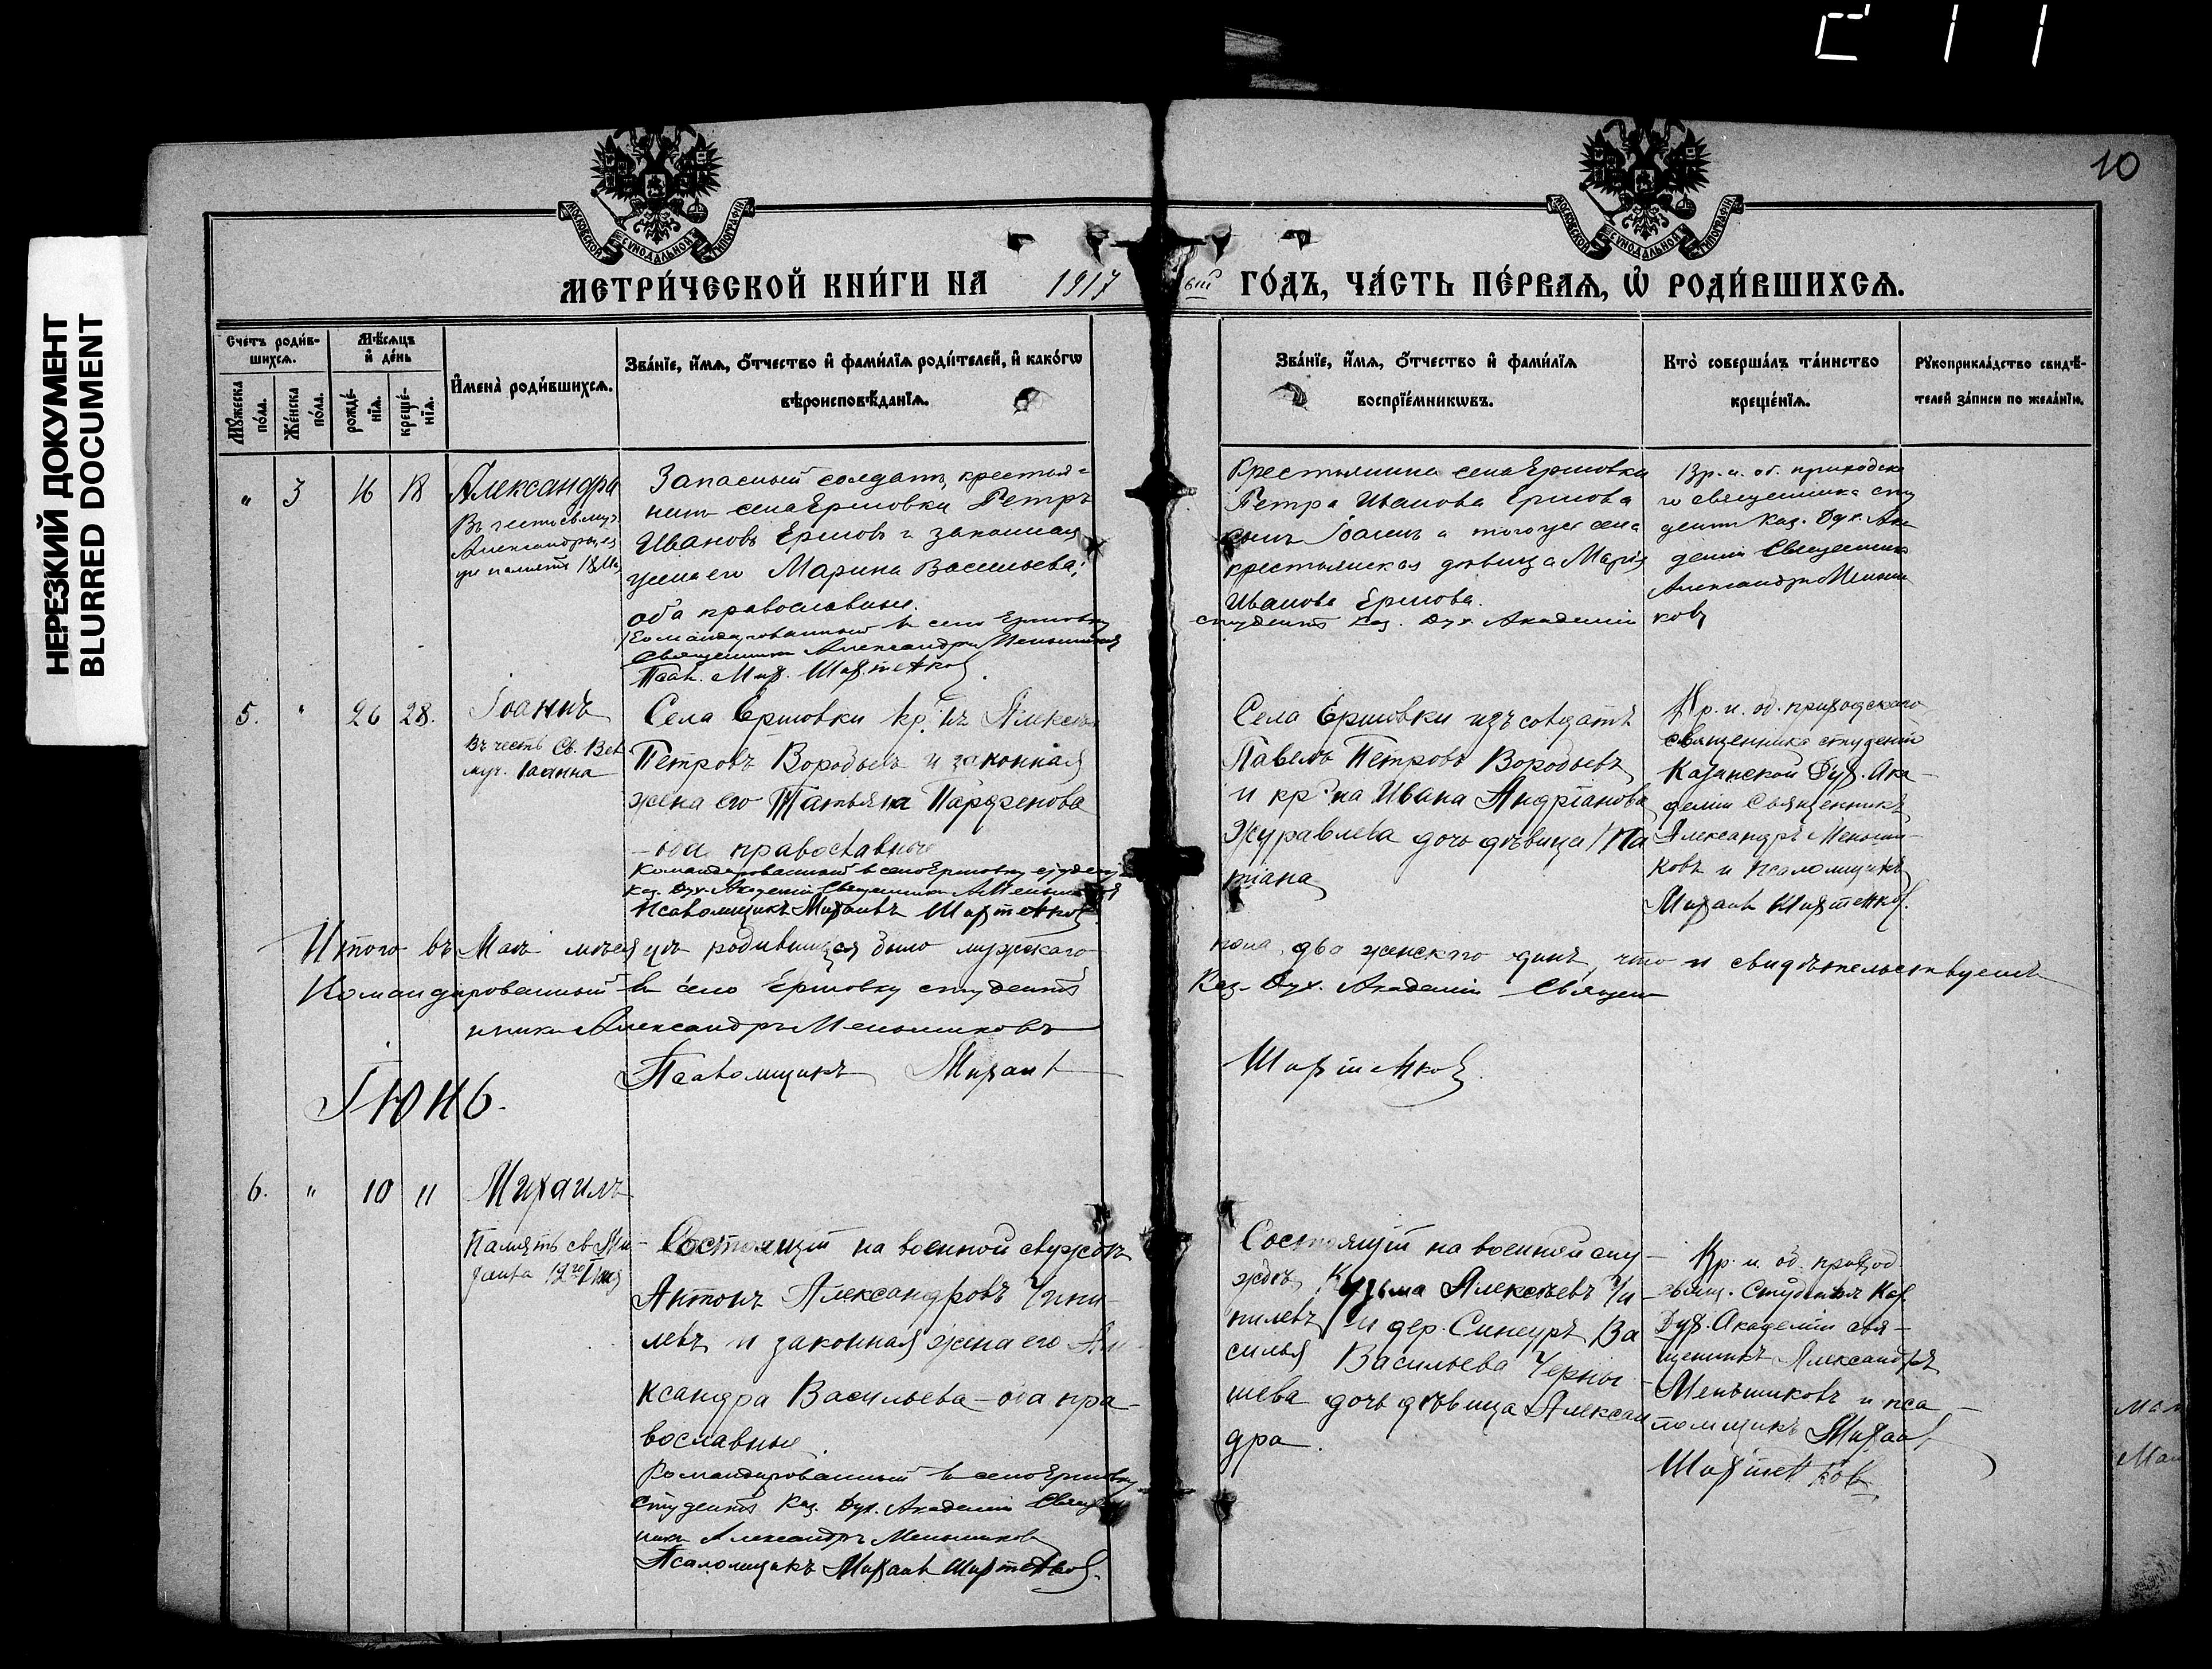 НЕРЕЗКИЙ ДОКУМЕНТ
BLURRED DOCUMENT
10
МОСКОВСКОЙ СѴНОДАЛЬНОЙ ТИПОГРАФІИ
МОСКОВСКОЙ СѴНОДАЛЬНОЙ ТИПОГРАФІИ
МЕТРИ́ЧЕСКОЙ КНИ́ГИ НА 1917 ый ГО́ДЪ, ЧА́СТЬ ПЕ́РВАѦ, Ѡ҆ РОДИ́ВШИХСѦ.
Счетъ роди́в-
шихсѧ.
Мꙋжеска по́ла.
Же́нска по́ла.
Мѣ́сѧцъ
и҆ де́нь
рожде́-
нїѧ.
креще́-
нїѧ.
И҆мена̀ роди́вшихсѧ.
Зва́нїе, и҆́мѧ, ѻ҆́тчество и҆ фами́лїѧ роди́телей, и҆ како́гѡ
вѣроисповѣ́данїѧ.
Зва́нїе, и҆́мѧ, ѻ҆́тчество и҆ фами́лїѧ
воспрїе́мникѡвъ.
Кто̀ соверша́лъ та́инство
креще́нїѧ.
Рꙋкоприкла́дство свидѣ́-
телей за́писи по жела́нїю.
" 3 16 18 Александра
Въ честь св. муч.
Александры, ея
же память 18 Ма
Запасный солдатъ, крестья-
нинъ села Ершовки Петръ
Ивановъ Ершовъ и законная
жена его Марина Васильева;
оба православные.
Командированный въ село Ершовку
Священникъ Александръ Меньшиковъ
Псал. Мих.
Крестьянина села Ершовки
Петра Иванова Ершова
сынъ Іоаннъ и того же села
крестьянская дѣвица Марія
Иванова Ершова.
студентъ Каз. Дух. Академіи
Кр. и. об. приходска
го священника сту
дентъ Каз. Дух. Ака
деміи Священникъ
Александръ Меньши
ковъ
5. " 26 28. Іоаннъ
Въ честь Св. Вел.
муч. Іоанна
Села Ершовки кр-нъ Алексѣй
Петровъ Воробьевъ и законная
жена его Татьяна Парфенова
— оба православные
Командированный въ село Ершовку студентъ
Каз. Дух. Академіи Священникъ А Меньшиковъ
Псаломщикъ Михаилъ
Села Ершовки изъ солдатъ
Павелъ Петровъ Воробьевъ
и кр-на Ивана Андріанова
Журавлева дочь дѣвица Та
тіана
Кр. и. об. приходскаго
священника студентъ
Казанской Дух. Ака-
деміи Священникъ
Александръ Меньши-
ковъ и псаломщикъ
Михаилъ
Итого въ Маѣ мѣсяцѣ родившихся было мужскаго пола два женскаго одинъ, что и свидѣтельствуемъ
Командированный въ село Ершовку студентъ Каз. Дух. Академіи Священ
никъ Александръ Меньшиковъ
Псаломщикъ Михаилъ
Іюнь.
6. " 10 11 Михаилъ
Память св. Ми-
хаила 12го Іюня
Состоящій на военной службѣ
Антонъ Александровъ
левъ и законная жена его Але
ксандра Васильева — оба пра-
вославные.
Командированный въ село Ершовку
студентъ Каз. Дух. Академіи Священ
никъ Александръ Меньшиковъ
Псаломщикъ Михаилъ
Состоящій на военной слу-
жбѣ Кузьма Алексѣевъ
и дер. Синеуръ Ва
силья Васильева Черны-
шева дочь дѣвица Алексан
дра.
Кр. и. об. приход.
свящ. Студентъ Каз.
Дух. Академіи свя-
щенникъ Александръ
Меньшиковъ и пса-
ломщикъ Михаилъ